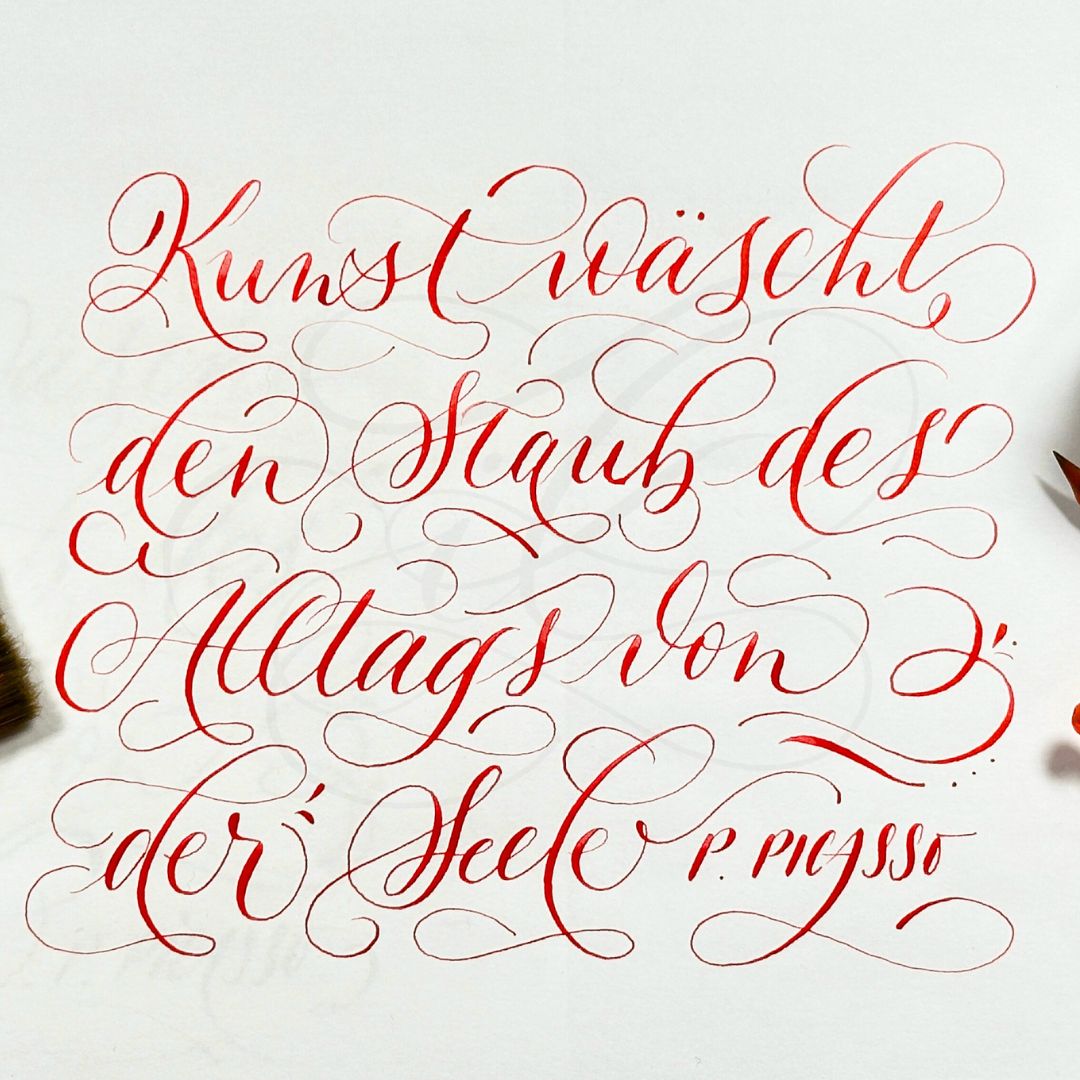 Kunst wäscht
den Staub des
Alltags von
der Seele P. PICASSO